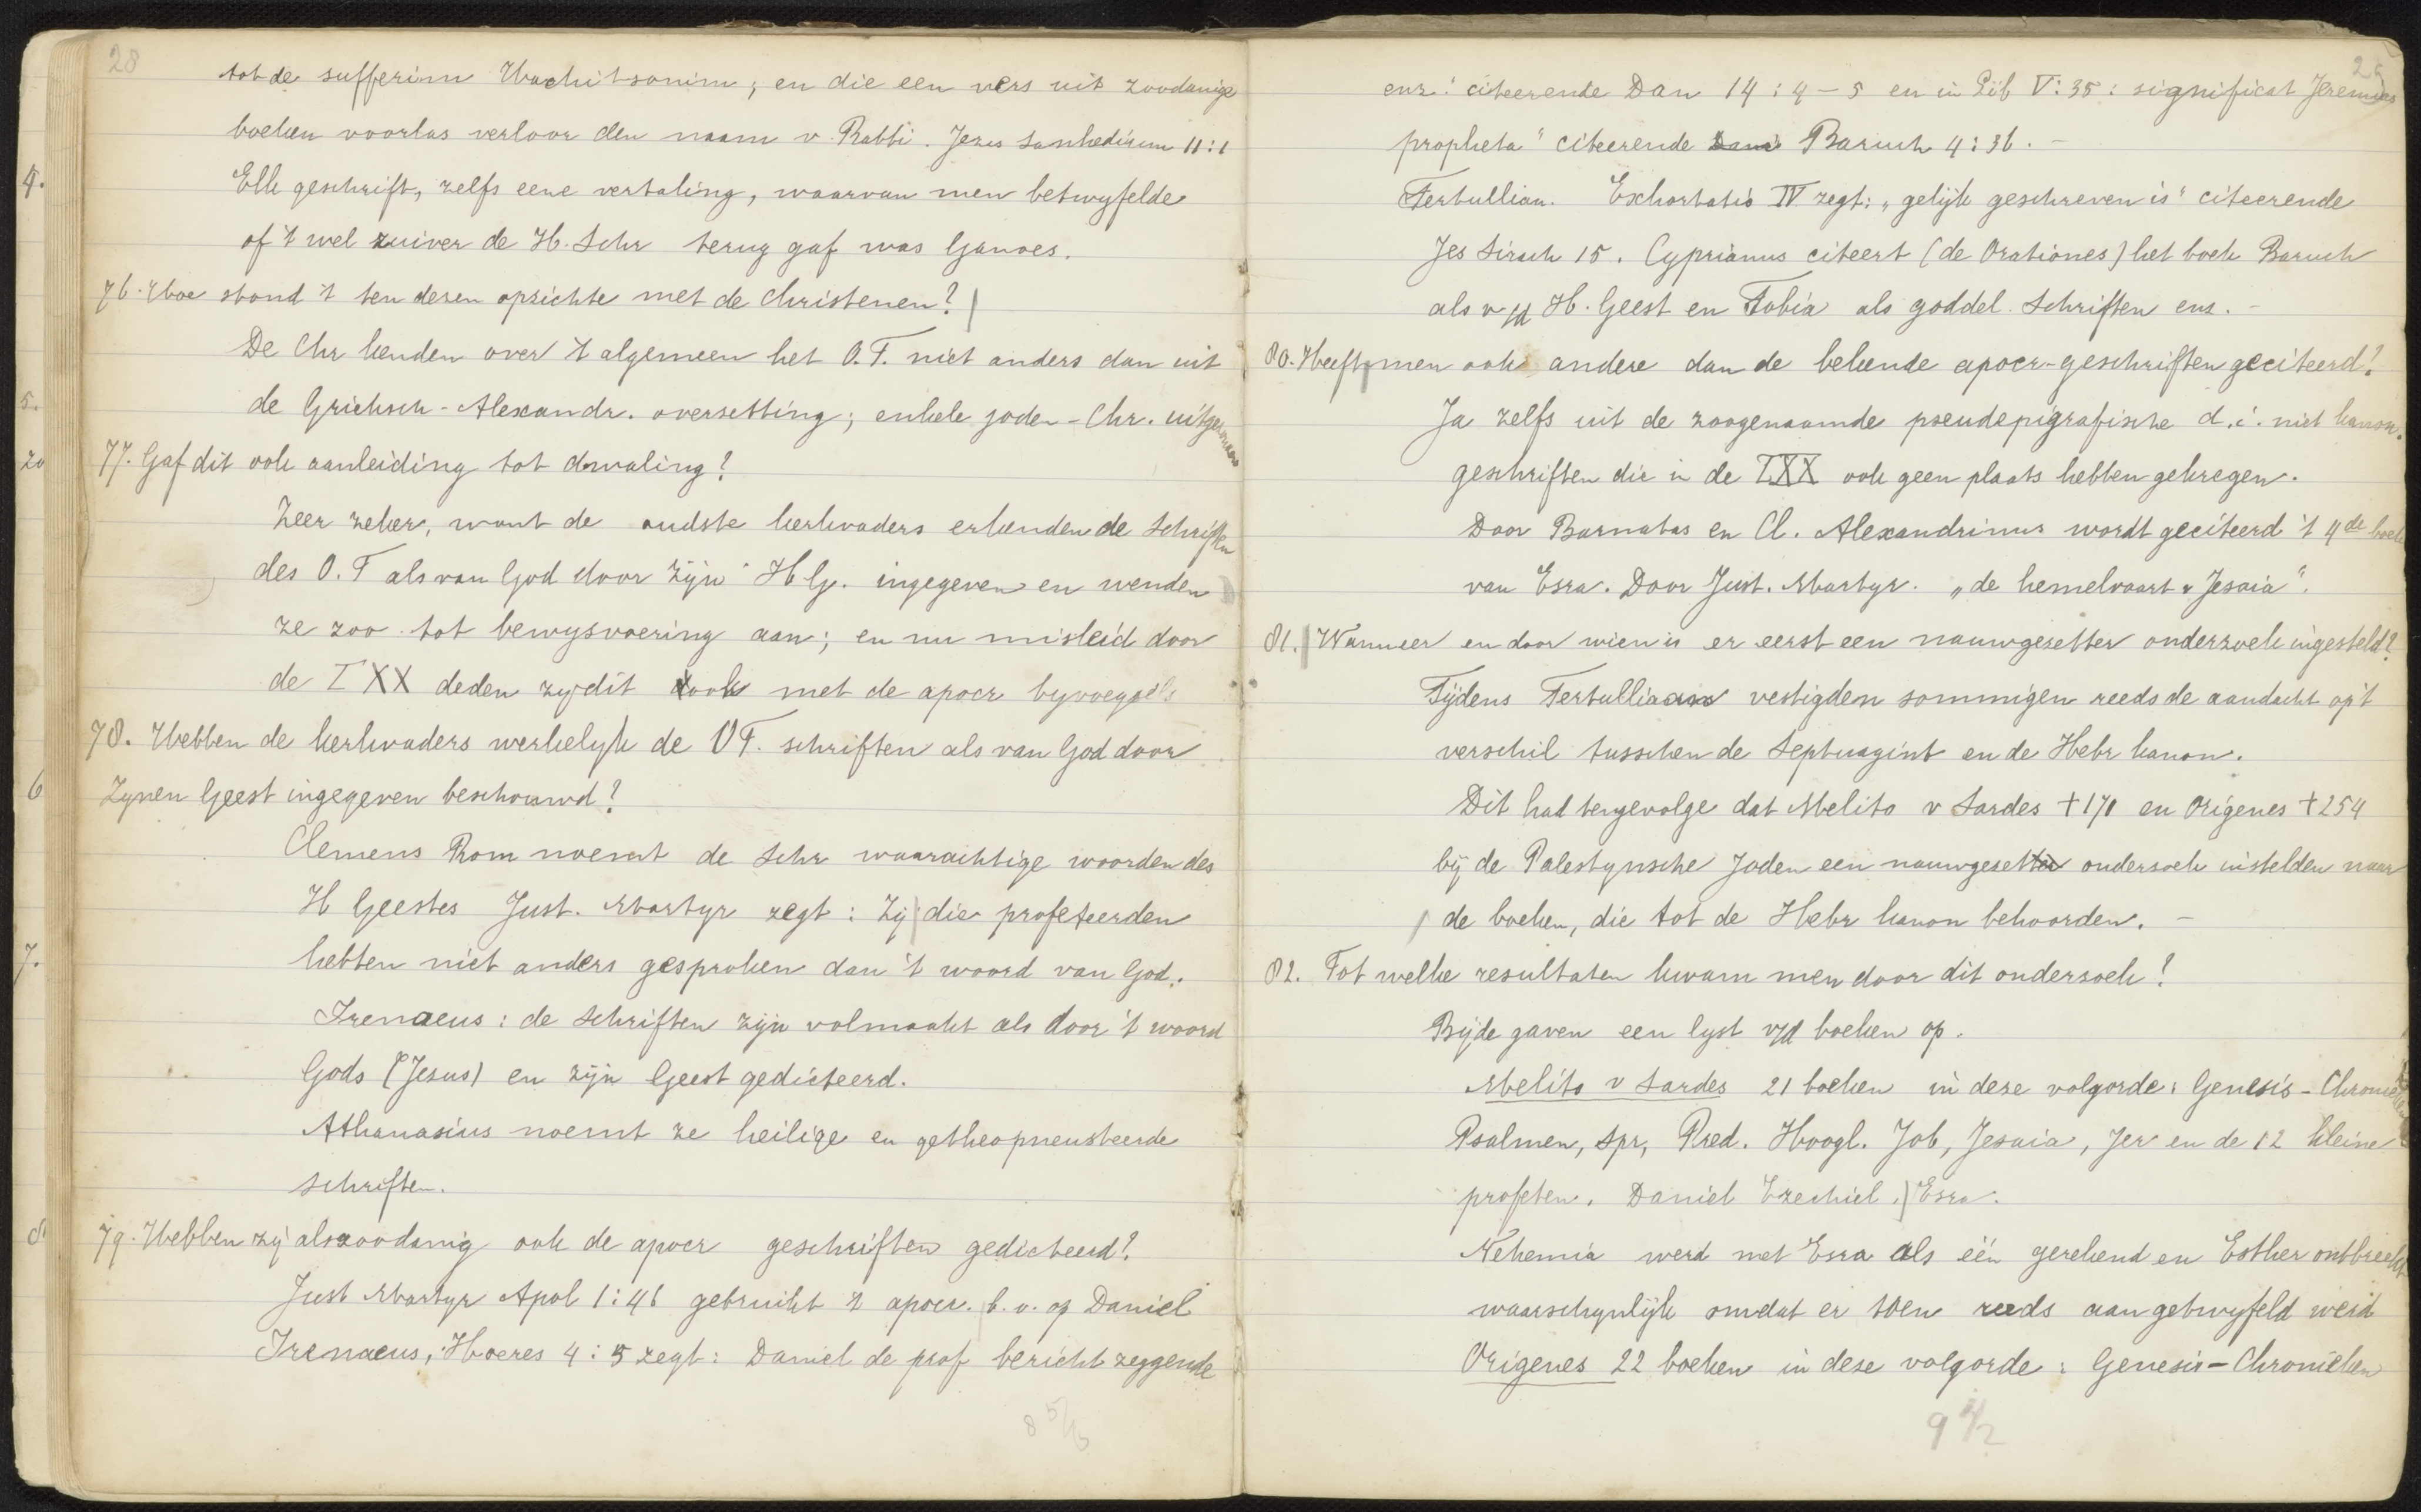 28
tot de sefferim Hachitsonim, en die een vers uit zoodanige
boeken voorlas verloor den naam v. Rabbi. Jeruz Sanhedrium 11:1
Elk geschrift, zelfs eene vertaling, waarvan men betwyfelde
of 't wel zuiver de H. Schr terug gaf was Ganoes.
76. Hoe stond 't ten dezen opzichte met de Christenen?
De Chr kenden over 't algemeen het O.T. niet anders dan uit
de Grieksch-Alexandr. overzetting; enkele joden-Chr. uitgenomen
77. Gaf dit ook aanleiding tot dwaling?
Zeer zeker, want de oudste kerkvaders erkenden de Schriften
des O.T als van God door Zijn H G. ingegeven en wenden
ze zoo tot bewysvoering aan; en nu misleid door
de LXX deden zy dit ook met de apocr byvoegsels
78. Hebben de kerkvaders werkelyk de OT. schriften als van God door
Zynen Geest ingegeven beschouwd?
Clemens Rom noemt de Schr waarachtige woorden des
H Geestes Just. Martyr zegt: Zij die profeteerden
hebben niet anders gesproken dan 't woord van God.
Irenaeus: de Schriften zijn volmaakt als door 't woord
Gods (Jesus) en zijn Geest gedicteerd.
Athanasius noemt ze heilige en getheopneusteerde
schriften.
79. Hebben zij als zoodanig ook de apocr geschriften gedicteerd?
Just Martyr Apol 1:46 gebruikt 't apocr. b.v. op Daniel
Irenaeus, Haeres 4:5 zegt: Daniel de prof bericht zeggende
8 5/6
4.
5.
20
6
7.
8.
29
enz: citeerende Dan 14:4-5 en in Lib V:35: significat Jeremias
propheta" citeerende Dani Baruch 4:36. -
Tertullian. Exhortatio IV zegt: "gelijk geschreven is" citeerende
Jes Sirach 15. Cyprianus citeert (de Orationes) het boek Baruch
als v/d H. Geest en Tobia als goddel. Schriften enz. -
80. Heeft men ook andere dan de bekende apocr-geschriften geciteerd?
Ja zelfs uit de zoogenaamde pseudepigrafische d.i. niet kanon.
geschriften die in de LXX ook geen plaats hebben gekregen.
Door Barnabas en Cl. Alexandrinus wordt geciteerd 't 4de boek
van Esra. Door Just. Martyr. "de hemelvaart v Jesaia".
81. Wanneer en door wien is er eerst een nauwgezetter onderzoek ingesteld?
Tijdens Tertullianus vestigden sommigen reeds de aandacht op 't
verschil tusschen de Septuagint en de Hebr kanon.
Dit had tengevolge dat Melito v Sardes †170 en Origenes †254
bij de Palestynsche Joden een nauwgezetter onderzoek instelden naar
de boeken, die tot de Hebr kanon behoorden. -
82. Tot welke resultaten kwam men door dit onderzoek?
Bijde gaven een lyst v/d boeken op.
Melito v Sardes 21 boeken in deze volgorde: Genesis-Chronieken
Psalmen, Spr, Pred. Hoogl. Job, Jesaia, Jer en de 12 kleine
profeten. Daniel Ezechiel. Esra.
Nehemia werd met Esra als één gerekend en Esther ontbreekt
waarschynlijk omdat er toen reeds aan getwyfeld werd
Origenes 22 boeken in deze volgorde: Genesis-Chronieken
9 1/2